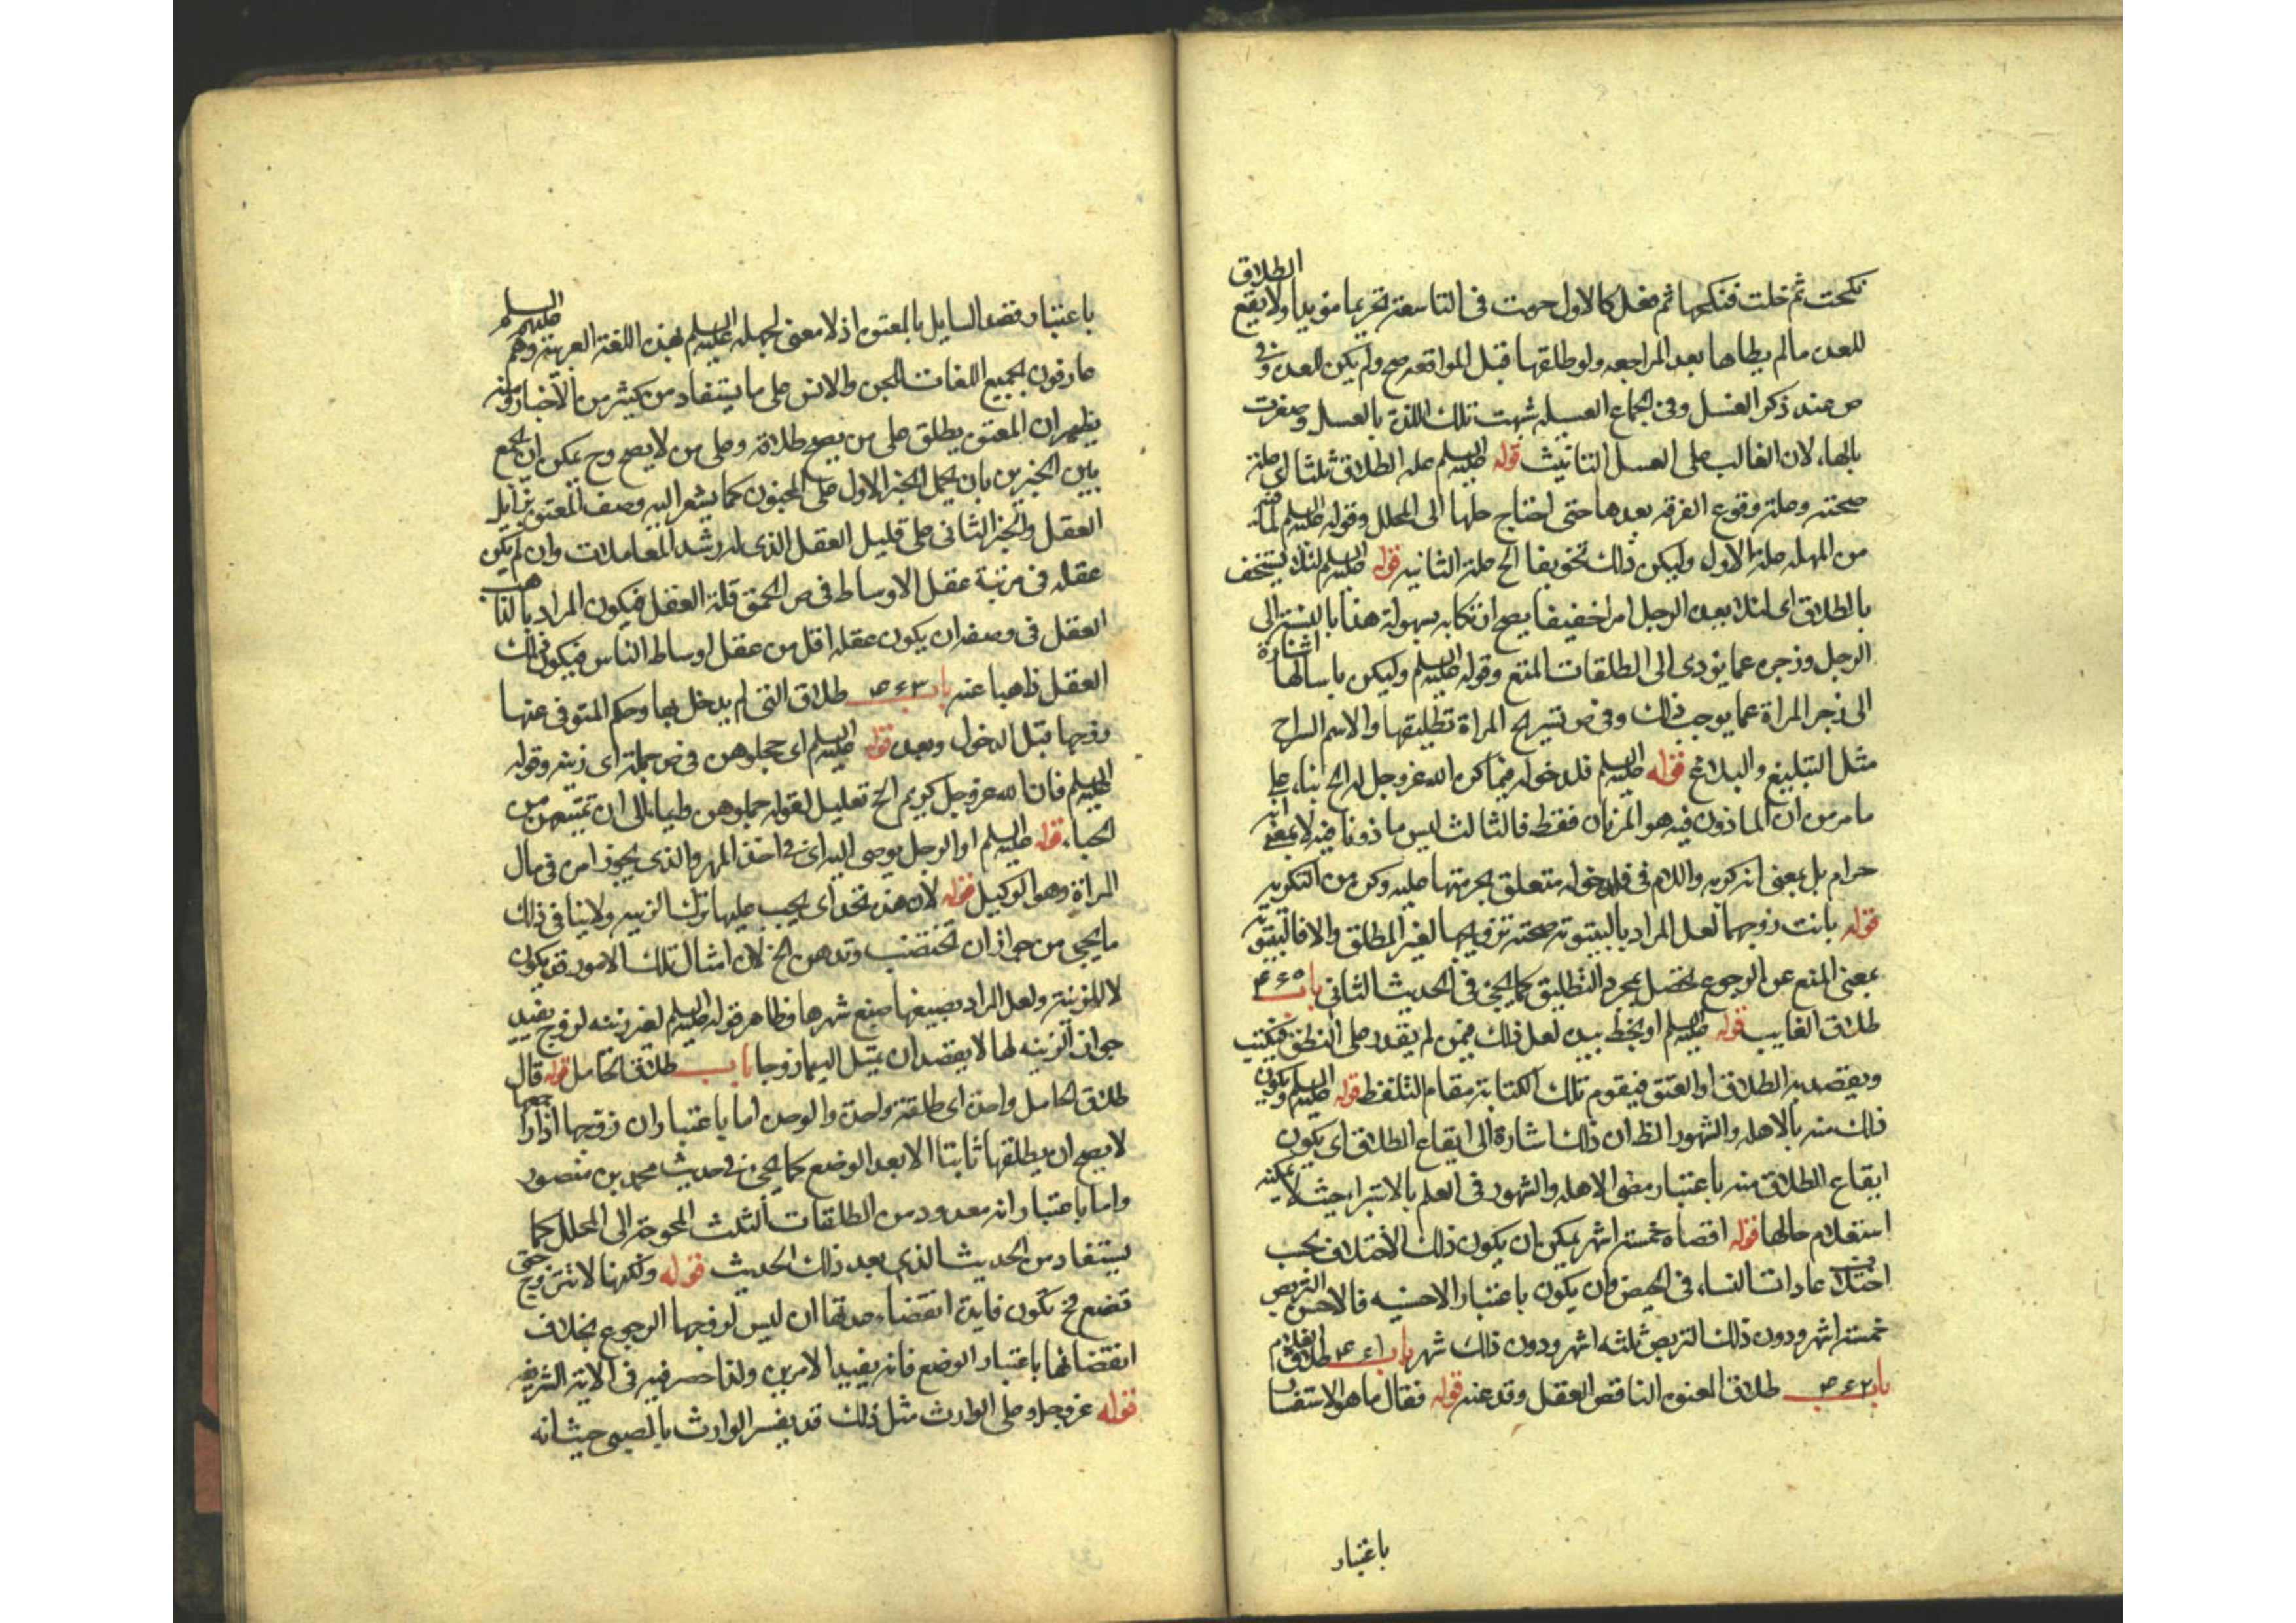 الطلاق
نكحت ثم خلت فنكحها ثم فعل كالاول حرمت في التاسعة تحريما مؤبدا ولا يقع
للعدة مالم يطاها بعد المراجعه ولو طلقها قبل المواقعه صح ولم يكن للعدة وفي
ص عند ذكر الغسل وفي الجماع العسيله شبهت تلك اللذة بالعسل وصغرت
بالهاء لان الغالب على العسل التانيث قوله عليه السلم عله الطلاق ثلثا اي علة
صحته وعلة وقوع الفرقه بعدها حتى احتاج حلها الى المحلل وقوله عليه السلم لما فيه
من المهله علة الاول وليكن ذلك تخويفا الخ علة الثانيه قوله عليه السلم لئلا يستخف
بالطلاق اي لئلا يعد الرجل امرا خفيفا يصح ارتكابه بسهولة هذا بالنسبة الى
الرجل وزجره عما يؤدى الى الطلقات المنع وقوله عليه السلم وليكن ياسا لها اشارة
الى زجر المراة عما يوجب ذلك وفي ص تسريح المراة تطليقها والاسم السراح
مثل التبليغ والبلاغ قوله عليه السلم فلدخوله فيما كره الله عز وجل له الخ بناء على
ما مر من ان الماذون فيه هو المرتان فقط فالثالث ليس ماذونا فيه لا بمعنى انه
حرام بل بمعنى انه كره واللام في فلدخوله متعلق بحرمتها عليه وكره من التكريه
قوله بانت زوجها لعل المراد بالبينونة صحته تزويجها لغير المطلق والا فالبينونة
بمعنى المنع عن الرجوع تحصل بمجرد التطليق كما يجئ في الحديث الثاني باب
طلاق الغايب قوله عليه السلم او يخط بيده لعل ذلك فيمن لم يقدر على النطق فيكتب
ويقصد به الطلاق او العتق فيقوم تلك الكتابة مقام التلفظ قوله عليه السلم ويكون
ذلك منه بالاهله والشهور الظ ان ذلك اشارة الى ايقاع الطلاق اي يكون
ايقاع الطلاق منه باعتبار مضى الاهله والشهور في العلم بالاستبراء حيث لا يمكنه
استعلام حالها قوله اقصاه خمسة اشهر يمكن ان يكون ذلك الاختلاف بحسب
اختلاف عادات النساء في الحيض وان يكون باعتبار الاحسنيه فالاحسن التربص
خمسة اشهر ودون ذلك التربص ثلثه اشهر ودون ذلك شهر باب ۴۶۱ طلاق الغلام
باب ۴۶۲ طلاق المعتوه الناقص العقل وقد عته قوله فقال ما هو الاستفسار
باعتبار
باعتبار قصد السايل بالمعتوه اذ لا معنى لجهله عليه السلم بهذه اللغة العربية وهم عليهم السلم
عارفون بجميع اللغات الجن والانس على ما يستفاد من كثير من الاخبار ومنه
يظهر ان المعتوه يطلق على من يصح طلاقه وعلى من لا يصح وح يمكن ان يجمع
بين الخبرين بان يحمل الخبر الاول على المجنون كما يشعر اليه وصف المعتوه بزايل
العقل والخبر الثاني على قليل العقل الذي له رشد المعاملات وان لم يكن
عقله في مرتبة عقل الاوساط في ص الحمق قلة العقل فيكون المراد بالذاهب
العقل في وصفه ان يكون عقله اقل من عقل اوساط الناس فيكون ذلك
العقل ذاهبا عنه باب ۴۶۳ طلاق التي لم يدخل بها وحكم المتوفى عنها
زوجها قبل الدخول وبعده قوله عليه السلم اي حملوهن في ص حمله اي زينه وقوله
عليه السلم فان الله عز وجل كريم الخ تعليل لقوله حملوهن وايماء الى ان تمتيعهن من
الحباء قوله عليه السلم او الرجل يوصى اليه اي في اخذ المهر والذي يجوز امره في مال
المراة وهو الوكيل قوله لان هذه تحد اي يجب عليها ترك الزينه ولا ينافي ذلك
ما يجئ من جواز ان تختضب وتدهن الخ لان امثال تلك الامور قد يكون
لا للزينة ولعل المراد بصبغها صبغ شعرها وظاهر قوله عليه السلم لغير زينه لزوج يفيد
جواز الزينه لها لا بقصد ان يتميل اليها زوجا باب طلاق الحامل قوله قال
طلاق الحامل واحدة اي طلقة واحدة والوحدة اما باعتبار ان زوجها اذا راجعها
لا يصح ان يطلقها ثانيا الا بعد الوضع كما يجئ في حديث محمد بن منصور
واما باعتبار انه معدود من الطلقات الثلث المحوجة الى المحلل كما
يستفاد من الحديث الذي بعد ذلك الحديث قوله ولكنها لا تتزوج حتى
تضع فح تكون فايدة انقضاء عدتها ان ليس لزوجها الرجوع بخلاف
انقضائها باعتبار الوضع فانه يفيد الامرين ولذا حصر فيه في الاية الشريفه
قوله عز وجل وعلى الوارث مثل ذلك قد يفسر الوارث بالصبى حيث انه